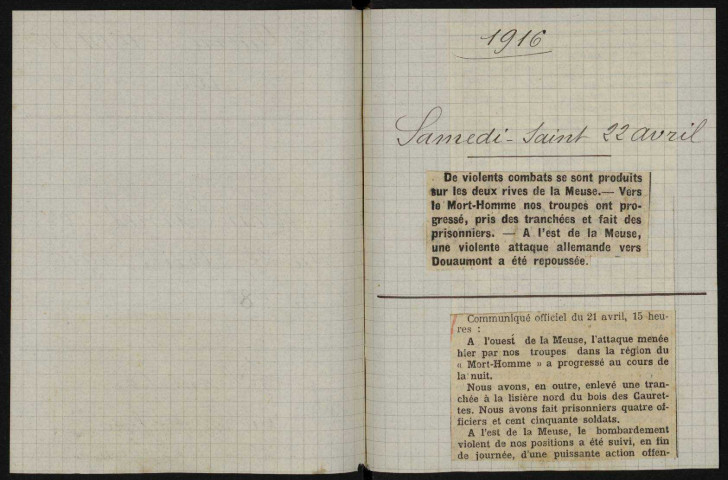 1916
Samedi-Saint 22 avril
De violents combats se sont produits
sur les deux rives de la Meuse.— Vers
le Mort-Homme nos troupes ont pro-
gressé, pris des tranchées et fait des
prisonniers. — A l'est de la Meuse,
une violente attaque allemande vers
Douaumont a été repoussée.
Communiqué officiel du 21 avril, 15 heu-
res :
A l'ouest de la Meuse, l'attaque menée
hier par nos troupes dans la région du
« Mort-Homme » a progressé au cours de
la nuit.
Nous avons, en outre, enlevé une tran-
chée à la lisière nord du bois des Cauret-
tes. Nous avons fait prisonniers quatre of-
ficiers et cent cinquante soldats.
A l'est de la Meuse, le bombardement
violent de nos positions a été suivi, en fin
de journée, d'une puissante action offen-